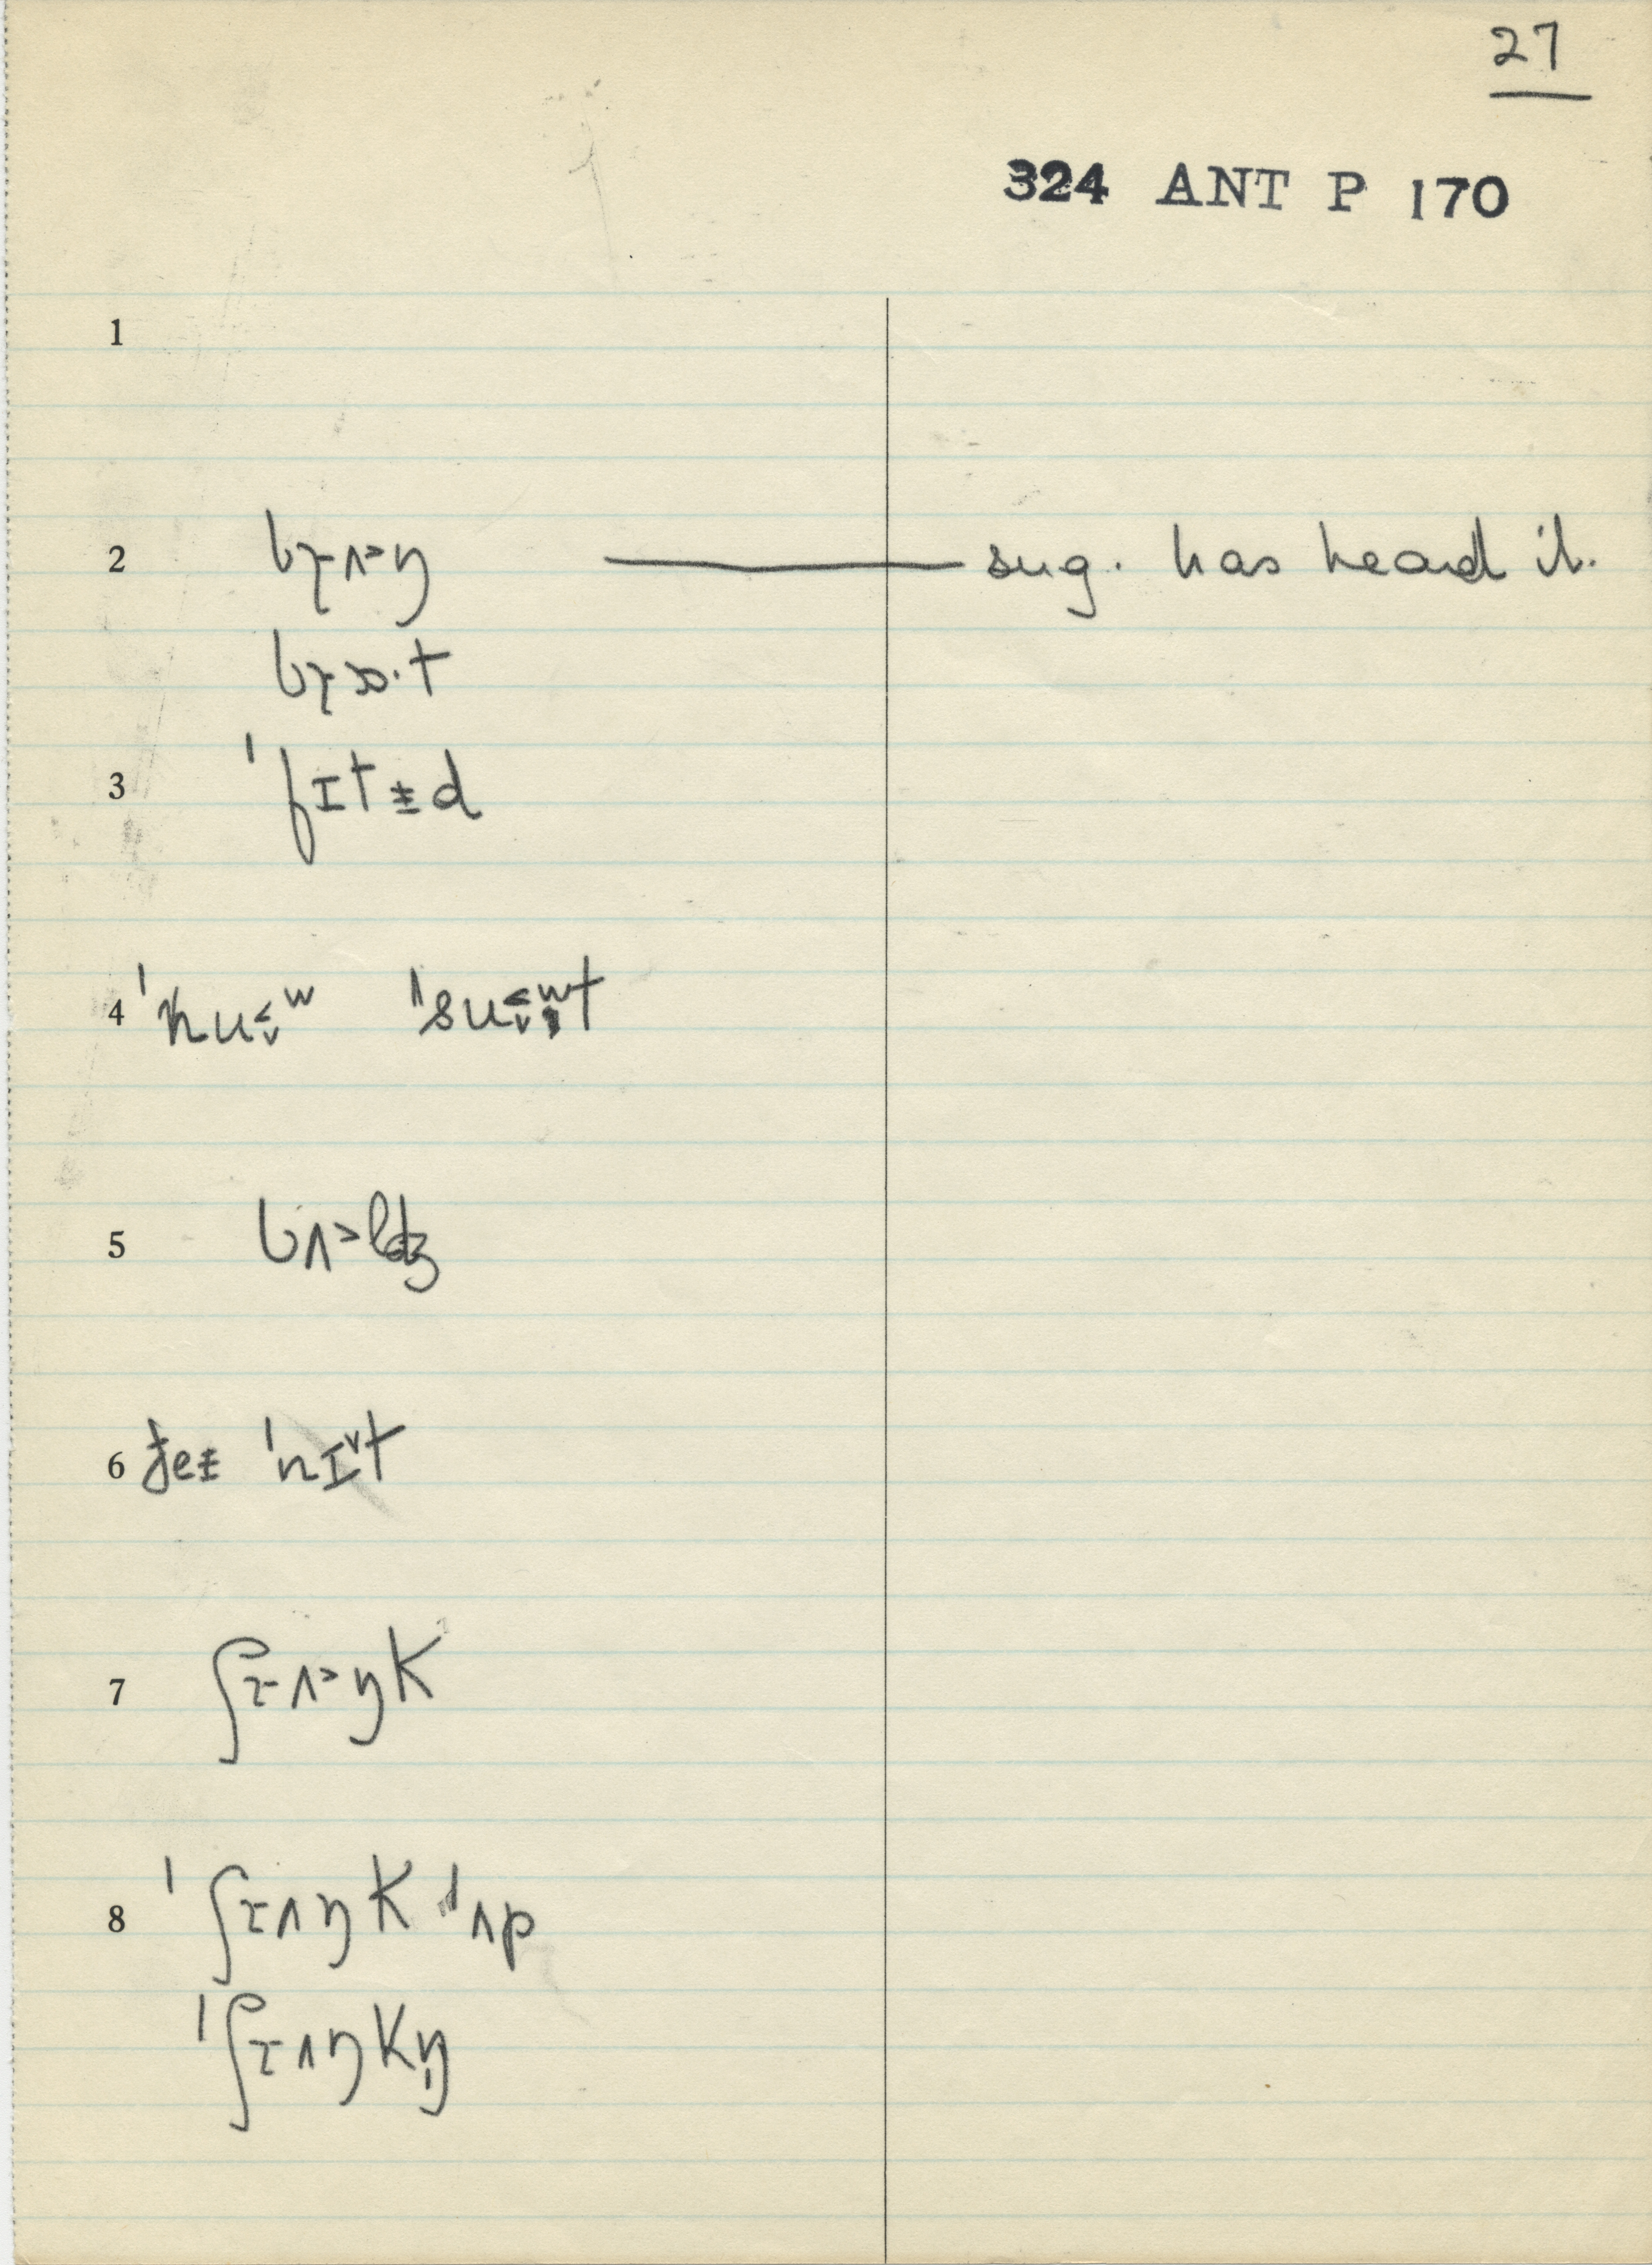 27
324 ANT P 170
1
2 bɤʌ˃ŋ — sug. has heard it.
bɤɒ·t
3 ˈfɪtɨd
4 ˈnu˂ᵛʷ ˈsu˂ᵛʷt
5 bʌ˃ldʒ
6 ɟeɨ ˈnɪ˅t
7 ʃɤʌ˃ŋk
8 ˈʃɤʌŋk ˈʌp
ˈʃɤʌŋkŋ̩